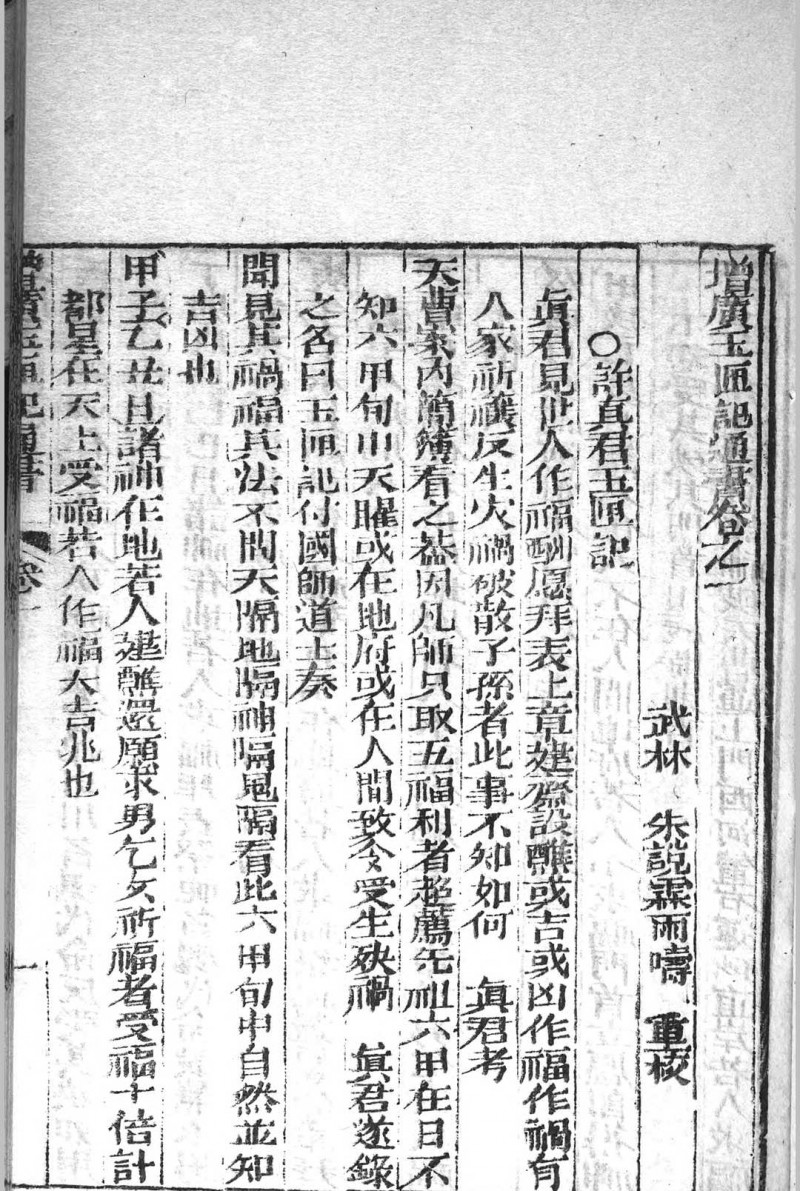 增廣玉匣記通書卷之一
武林 朱說霖雨疇 重校
○許真君玉匣記
眞君見世人作福酧愿拜表上章建齋設醮或吉或凶作福作禍有
人家祈禳反生灾禍破散子孫者此事不知如何 眞君考
天曹案內簡簿看之葢因凡師只取五福利者超薦先祖六甲在日不
知六甲旬中天曜或在地府或在人間致令受生殃禍 眞君遂錄
之名曰玉匣記付國師道士奏
聞見其禍福其法不問天隔地隔神隔鬼隔看此六甲旬中自然並知
吉凶也
甲子乙丑日諸神在地若人建醮還願求男乞女祈福者受福十倍計
都星在天上受福若人作福大吉兆也
增廣玉匣記通書 卷一 一